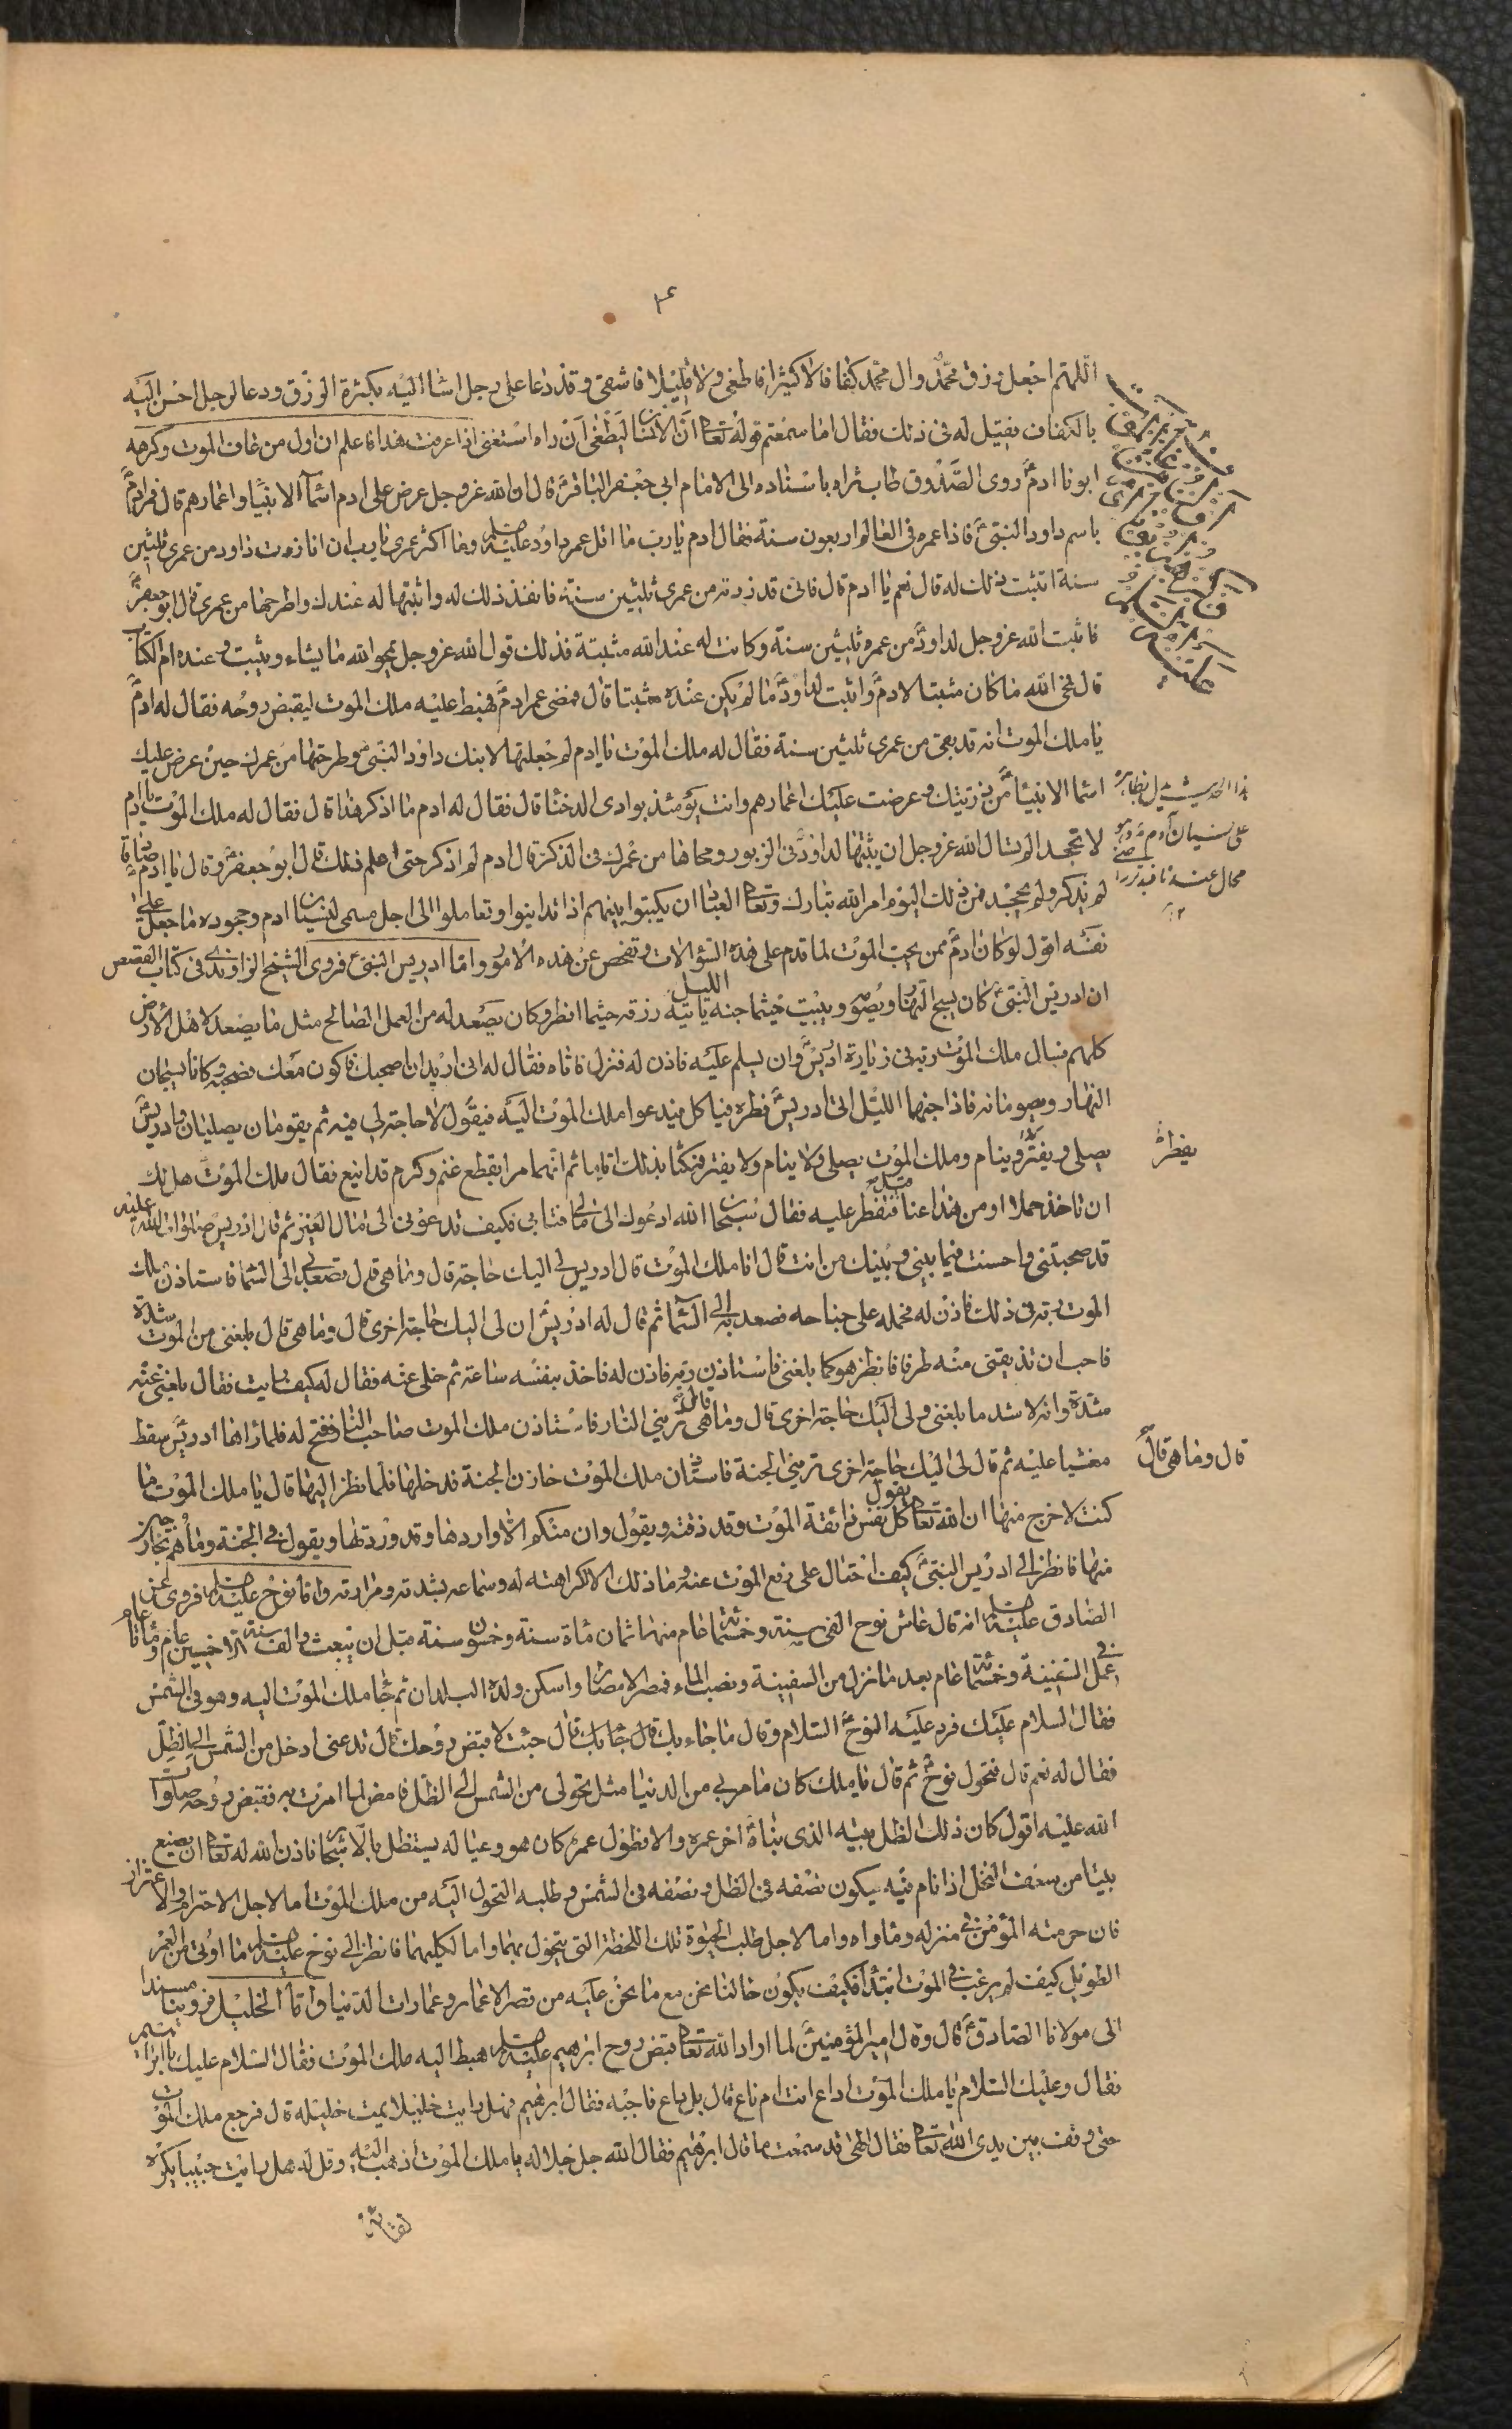 اللهم اجعل رزق محمد وال محمد كفافا لا كثيرا فاطغى ولا قليلا فاشقى وقد دعا على رجل اساء اليه بكثرة الرزق ودعا لرجل احسن اليه
بالكفاف فقيل له في ذلك فقال اما سمعتم قوله تعالى ان الانسان ليطغى ان راه استغنى اذا عرفت هذا فاعلم ان اول من عاف الموت وكرهه
ابونا ادم روى الصدوق طاب ثراه باسناده الى الامام ابي جعفر الباقر قال ان الله عز وجل عرض على ادم اسماء الانبياء واعمارهم قال فمر ادم
باسم داود النبي فاذا عمره في العالم اربعون سنة فقال ادم يا رب ما اقل عمر داود عليه السلم وما اكثر عمري يا رب ان انا زدت داود من عمري ثلثين
سنة اتثبت ذلك له قال نعم يا ادم قال فاني قد زدته من عمري ثلثين سنة فانفذ ذلك له واثبتها له عندك واطرحها من عمري قال ابو جعفر
فاثبت الله عز وجل لداود من عمره ثلثين سنة وكانت له عند الله مثبتة فذلك قول الله عز وجل يمحو الله ما يشاء ويثبت وعنده ام الكتاب
قال فمحى الله ما كان مثبتا لادم واثبت لداود ما لم يكن عنده مثبتا قال فمضى عمر ادم فهبط عليه ملك الموت ليقبض روحه فقال له ادم
يا ملك الموت انه قد بقى من عمري ثلثين سنة فقال له ملك الموت يا ادم الم تجعلها لابنك داود النبي وطرحتها من عمرك حين عرض عليك
اسماء الانبياء من ذريتك وعرضت عليك اعمارهم وانت يومئذ بوادي الدخنا قال فقال له ادم ما اذكر هذا قال فقال له ملك الموت يا ادم
لا تجحد الم تسال الله عز وجل ان يثبتها لداود في الزبور ومحاها من عمرك في الذكر قال ادم لم اذكر حتى اعلم ذلك قال ابو جعفر وقال يا ادم صادقا
لم يذكر ولم يجحد فمن ذلك اليوم امر الله تبارك وتعالى العباد ان يكتبوا بينهم اذا تداينوا وتعاملوا الى اجل مسمى لنسيان ادم وجحوده ما جعل على
نفسه اقول لو كان ادم ممن يحب الموت لما قدم على هذه السؤالات وتفحص عن هذه الامور واما ادريس النبي فروى الشيخ الراوندي في كتاب القصص
ان ادريس النبي كان يسيح النهار ويصومه ويبيت حيثما جنه الليل ياتيه رزقه حيثما افطر وكان يصعد له من العمل الصالح مثل ما يصعد لاهل الارض
كلهم فسال ملك الموت ربه في زيارة ادريس وان يسلم عليه فاذن له فنزل فاتاه فقال له اني اريد ان اصحبك فاكون معك فصحبه وكانا يسيحان
النهار ويصومانه فاذا جنهما الليل اتى ادريس فطره فياكل فيدعو ملك الموت اليه فيقول لا حاجة لي فيه ثم يقومان يصليان وادريس
يصلي ويفتر وينام وملك الموت يصلي ولا ينام ولا يفتر فمكثا بذلك اياما ثم انهما مرا بقطيع غنم وكرم قد اينع فقال ملك الموت هل لك
ان تاخذ حملا او من هذا عنبا فنفطر عليه فقال سبحان الله ادعوك الى مالي فتابى فكيف تدعوني الى مال الغير ثم قال ادريس صلوات الله عليه
قد صحبتني واحسنت فيما بيني وبينك من انت قال انا ملك الموت قال ادريس لي اليك حاجة قال وما هي قال تصعد بي الى السماء فاستاذن ملك
الموت ربه في ذلك فاذن له فحمله على جناحه فصعد به الى السماء ثم قال له ادريس ان لي اليك حاجة اخرى قال وما هي قال بلغني من الموت شدة
فاحب ان تذيقني منه طرفا فانظر هو كما بلغني فاستاذن ربه فاذن له فاخذ بنفسه ساعة ثم خلى عنه فقال له كيف رايت فقال بلغني عنه
شدة وانه لاشد مما بلغني ولي اليك حاجة اخرى قال وما هي قال تريني النار فاستاذن ملك الموت صاحب النار ففتح له فلما راها ادريس سقط
مغشيا عليه ثم قال لي اليك حاجة اخرى تريني الجنة فاستاذن ملك الموت خازن الجنة فدخلها فلما نظر اليها قال يا ملك الموت ما
كنت لاخرج منها ان الله تعالى يقول كل نفس ذائقة الموت وقد ذقته ويقول وان منكم الا واردها وقد وردتها ويقول في الجنة وما هم بخارجين
منها فانظر الى ادريس النبي كيف احتال على دفع الموت عنه وما ذلك الا لكراهته له وسماعه بشدته ومرارته واما نوح عليه السلم فروى عن
الصادق عليه السلم انه قال عاش نوح الفي سنة وخمسمائة عام منها ثمان مائة سنة وخمسون سنة قبل ان يبعث والف سنة الا خمسين عاما ومائتا عام
في عمل السفينة وخمسمائة عام بعد ما نزل من السفينة ونضب الماء فمصر الامصار واسكن ولده البلدان ثم جاء ملك الموت اليه وهو في الشمس
فقال السلام عليك فرد عليه النوح السلام وقال ما جاء بك قال جئت لاقبض روحك قال تدعني ادخل من الشمس الى الظل
فقال له نعم قال فتحول نوح ثم قال يا ملك كان ما مر بي من الدنيا مثل تحولي من الشمس الى الظل فامض لما امرت به فقبض روحه صلوات
الله عليه اقول كان ذلك الظل بيته الذي بناه اخر عمره والا فطول عمره كان هو وعياله يستظل بالاشجار فاذن الله له تعالى ان يصنع
بيتا من سعف النخل اذا نام فيه يكون نصفه في الظل ونصفه في الشمس وطلبه التحول اليه من ملك الموت اما لاجل الاحترام والاعتزاز
فان حرمة المؤمن في منزله وماواه واما لاجل طلب الحيوة تلك اللحظة التي يتحول بها واما لكليهما فانظر الى نوح عليه السلم ما اوتي من العمر
الطويل كيف لم يرغب في الموت ابتداء فكيف يكون حالنا نحن مع ما نحن عليه من قصر الاعمار وعمارات الدنيا واما الخليل فروينا مسندا
الى مولانا الصادق قال قال امير المؤمنين لما اراد الله تعالى قبض روح ابرهيم عليه السلم هبط اليه ملك الموت فقال السلام عليك يا ابرهيم
فقال وعليك السلام يا ملك الموت اداع انت ام ناع قال بل داع فاجبه فقال ابرهيم فهل رايت خليلا يميت خليله قال فرجع ملك الموت
حتى وقف بين يدي الله تعالى فقال الهى قد سمعت ما قال ابرهيم فقال الله جل جلاله يا ملك الموت اذهب اليه وقل له هل رايت حبيبا يكره
لقاء
هذا الحديث
على نسيان آدم
يفطر
قال وما هي قال